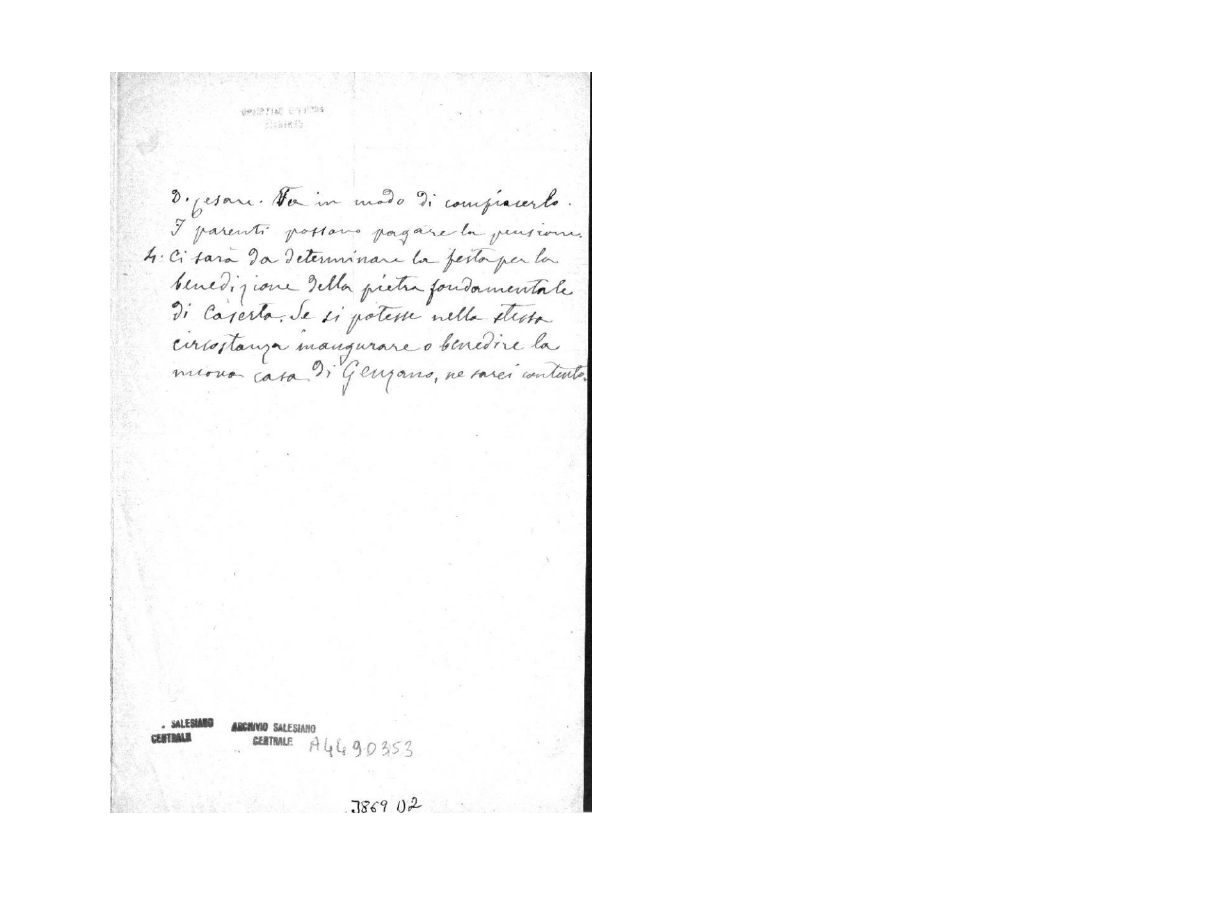 D. Cesare. Fa in modo di compiacerlo.
I parenti possono pagare la pensione.
4. Ci sarà da determinare la festa per la
benedizione della pietra fondamentale
di Caserta. Se si potesse nella stessa
circostanza inaugurare o benedire la
nuova casa di Genzano, ne sarei contento.
. SALESIANO
CENTRALE
ARCHIVIO SALESIANO
CENTRALE
A4490353
3869 D2